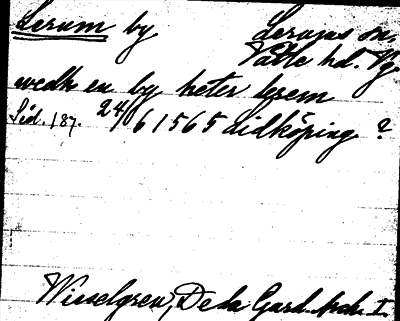 Lerum by Lerums sn,
Valle hd. Vg
wedh en by heter lerem
Sid. 187. 24/6 1565 Lidköping ?
Wieselgren, De la Gard. Ark. I.